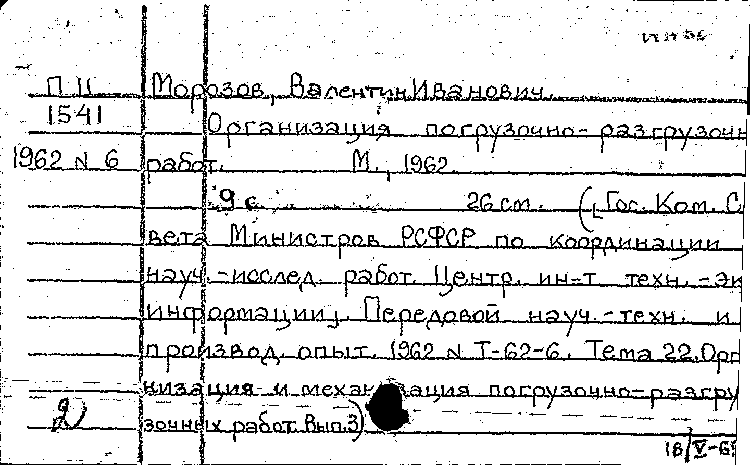 П 11 Морозов, Валентин Иванович.
1541 Организация погрузочно-разгрузочн
1962 N 6 работ. М., 1962.
9 с. 26 см. (Гос. Ком. С
вета Министров РСФСР по координации
науч.-исслед. работ. Центр. ин-т техн.-эк
информации. Передовой науч.-техн. и
производ. опыт. 1962 N Т-62-6. Тема 22. Орг
низация и механизация погрузочно-разгру
2) зочных работ. Вып.3)
18/V-6